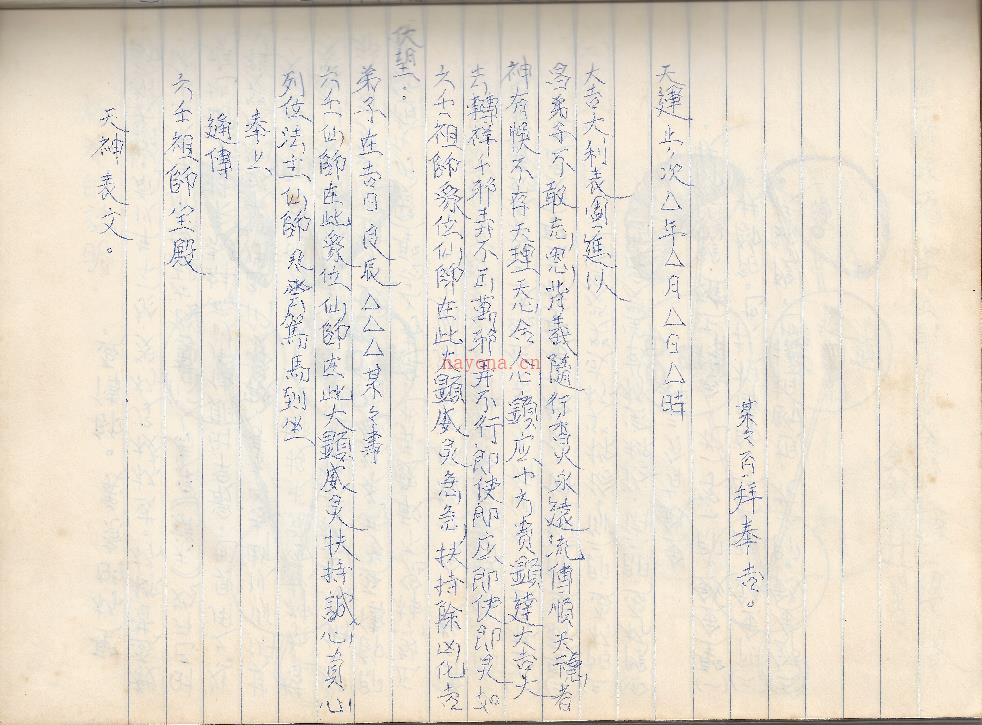 天神表文。
六壬祖師宝殿
通傳
奉上
列位法主仙師飛雲駕馬到坐
六壬仙師在此眾位仙師在此大顯威灵扶持誠心真心
弟子在吉日良辰△△△某々壽
伏望.
六壬祖師眾位仙師在此大顯威灵急急扶持除凶化吉
去轉祥千邪義不正萬邪昇不行即使即应即使即灵如
神有悞不存天理天心合人心顯应十方貴顯達大吉大
為尊等不敢忘恩背義隨行香火永遠流傳順天德者
大吉大利表進以
天運上次△年△月△日△時
某々百拜奉告。
nayona.cn